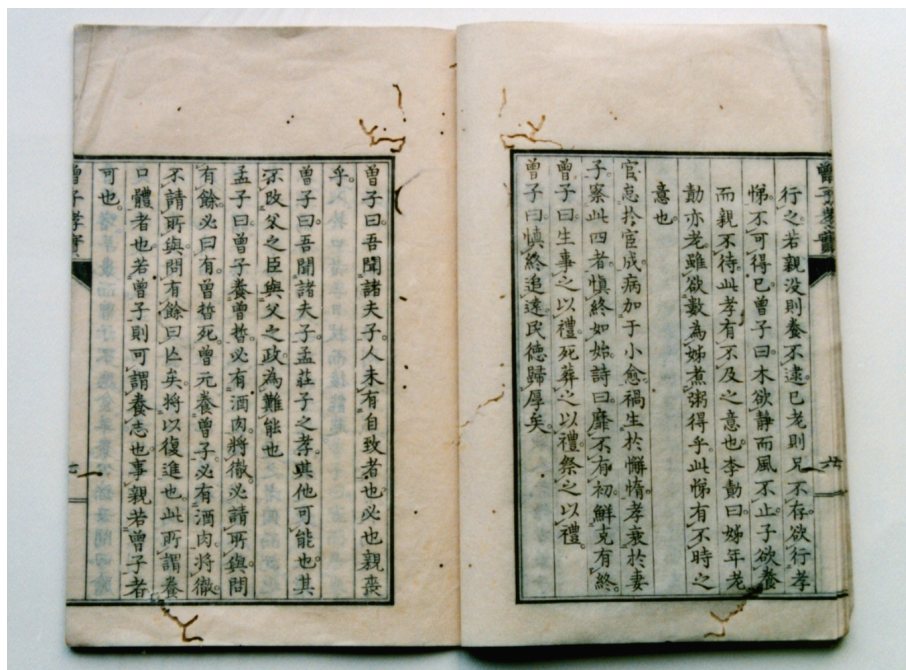 曾子孝實
行之若親没則養不逮已老則兄不存欲行孝
悌不可得已曾子曰木欲静而風不止子欲養
而親不待此孝有不及之意也李勣曰姊年老
勣亦老雖欲數為姊煮粥得乎此悌有不時之
意也
官怠於宦成病加于小愈禍生於懈惰孝衰於妻
子察此四者慎終如始詩曰靡不有初鮮克有終
曾子曰生事之以禮死葬之以禮祭之以禮
曾子曰慎終追遠民德歸厚矣
曾子曰吾聞諸夫子人未有自致者也必也親喪
乎
曾子曰吾聞諸夫子孟莊子之孝其他可能也其
不改父之臣與父之政為難能也
孟子曰曾子養曾晳必有酒肉將徹必請所與問
有餘必曰有曾晳死曾元養曾子必有酒肉將徹
不請所與問有餘曰亾矣將以復進也此所謂養
口體者也若曾子則可謂養志也事親若曾子者
可也
曾子孝實